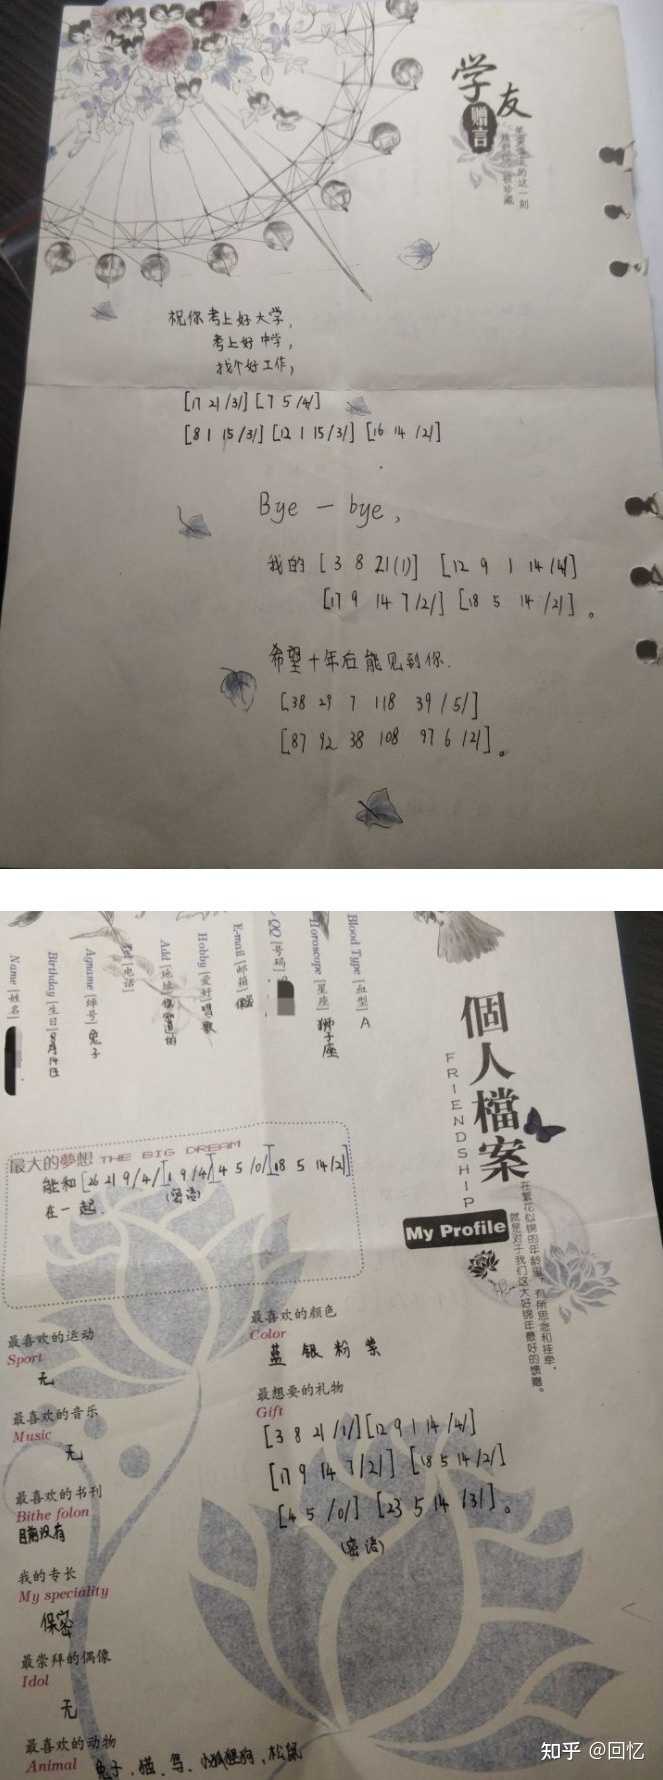 学友
赠言
祝你考上好大学，
考上好中学，
找个好工作，
[17 21 /3/] [7 5 /4/]
[8 1 15 /3/] [12 1 15 /3/] [16 14 /2/]
Bye — bye，
我的 [3 8 21 (1)] [12 9 1 14 /4/]
[17 9 14 7 /2/] [18 5 14 /2/]。
希望十年后能见到你.
[38 29 7 118 39 /5/]
[87 92 38 108 97 6 /2/]。
Name [姓名]
Birthday [生日] 8月14日
Agname [绰号] 兔子
Tel [电话]
Add [地址]
Hobby [爱好] 唱歌
E-mail [邮箱] 保密
QQ [号码]
Horoscope [星座] 狮子座
Blood Type [血型] A
個人檔案
FRIENDSHIP
My Profile
在繁花似锦的年龄里，有所思念和挂牵，
就是对于我们这大好锦年最好的馈赠。
最大的夢想 THE BIG DREAM
能和 [26 21 9 /4/] [1 9 /4/] [4 5 /0/] [18 5 14 /2/]
(密语)
在一起.
最喜欢的运动
Sport
无
最喜欢的音乐
Music
无
最喜欢的书刊
Bithe folon
目前没有
我的专长
My speciality
保密
最崇拜的偶像
Idol
无
最喜欢的动物
Animal 兔子、猫、鸟、小狐狸狗、松鼠
最喜欢的颜色
Color
蓝 银 粉 紫
最想要的礼物
Gift
[3 8 21 /1/] [12 9 1 14 /4/]
[17 9 14 7 /2/] [18 5 14 /2/]
[4 5 /0/] [23 5 14 /3/]。
(密语)
知乎 @回忆